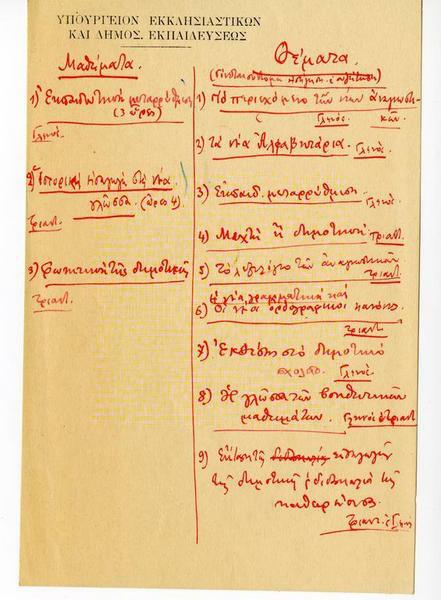 ΥΠΟΥΡΓΕΙΟΝ ΕΚΚΛΗΣΙΑΣΤΙΚΩΝ
ΚΑΙ ΔΗΜΟΣ. ΕΚΠΑΙΔΕΥΣΕΩΣ
Μαθήματα.
1) Ἐκπαιδευτική μεταρρύθμιση
(3 ὧρες)
Γληνός.
2) Ἱστορική εἰσαγωγή στή νέα
γλῶσσα. (ὧρες 4)
Τριαντ.
3) Φωνητική τῆς δημοτικῆς
Τριαντ.
Θέματα.
1) Τό περιεχόμενο τῶν νέων ἀναγνωστι-
κῶν. Γληνός.
2) Τά νέα Ἀλφαβητάρια. Γληνός.
3) Ἐκπαιδ. μεταρρύθμιση.
Γληνός.
4) δημοτική Τριαντ.
5) Τό λεξιλόγιο τῶν ἀναγνωστικῶν
Τριαντ.
Ἡ νέα γραμματική καί
6) Οἱ νέοι ὀρθογραφικοί κανόνες
Τριαντ.
7) Ἐκθέσεις στό δημοτικό
σχολεῖο. Γληνός.
8) Ἡ γλῶσσα τῶν βοηθητικῶν
μαθημάτων. Γληνός ἤ Τριαντ
9) εἰσαγωγῆς
τῆς δημοτικῆς ἡ διδασκαλία τῆς
καθαρεύουσας.
Τριαντ. ἤ Γλην